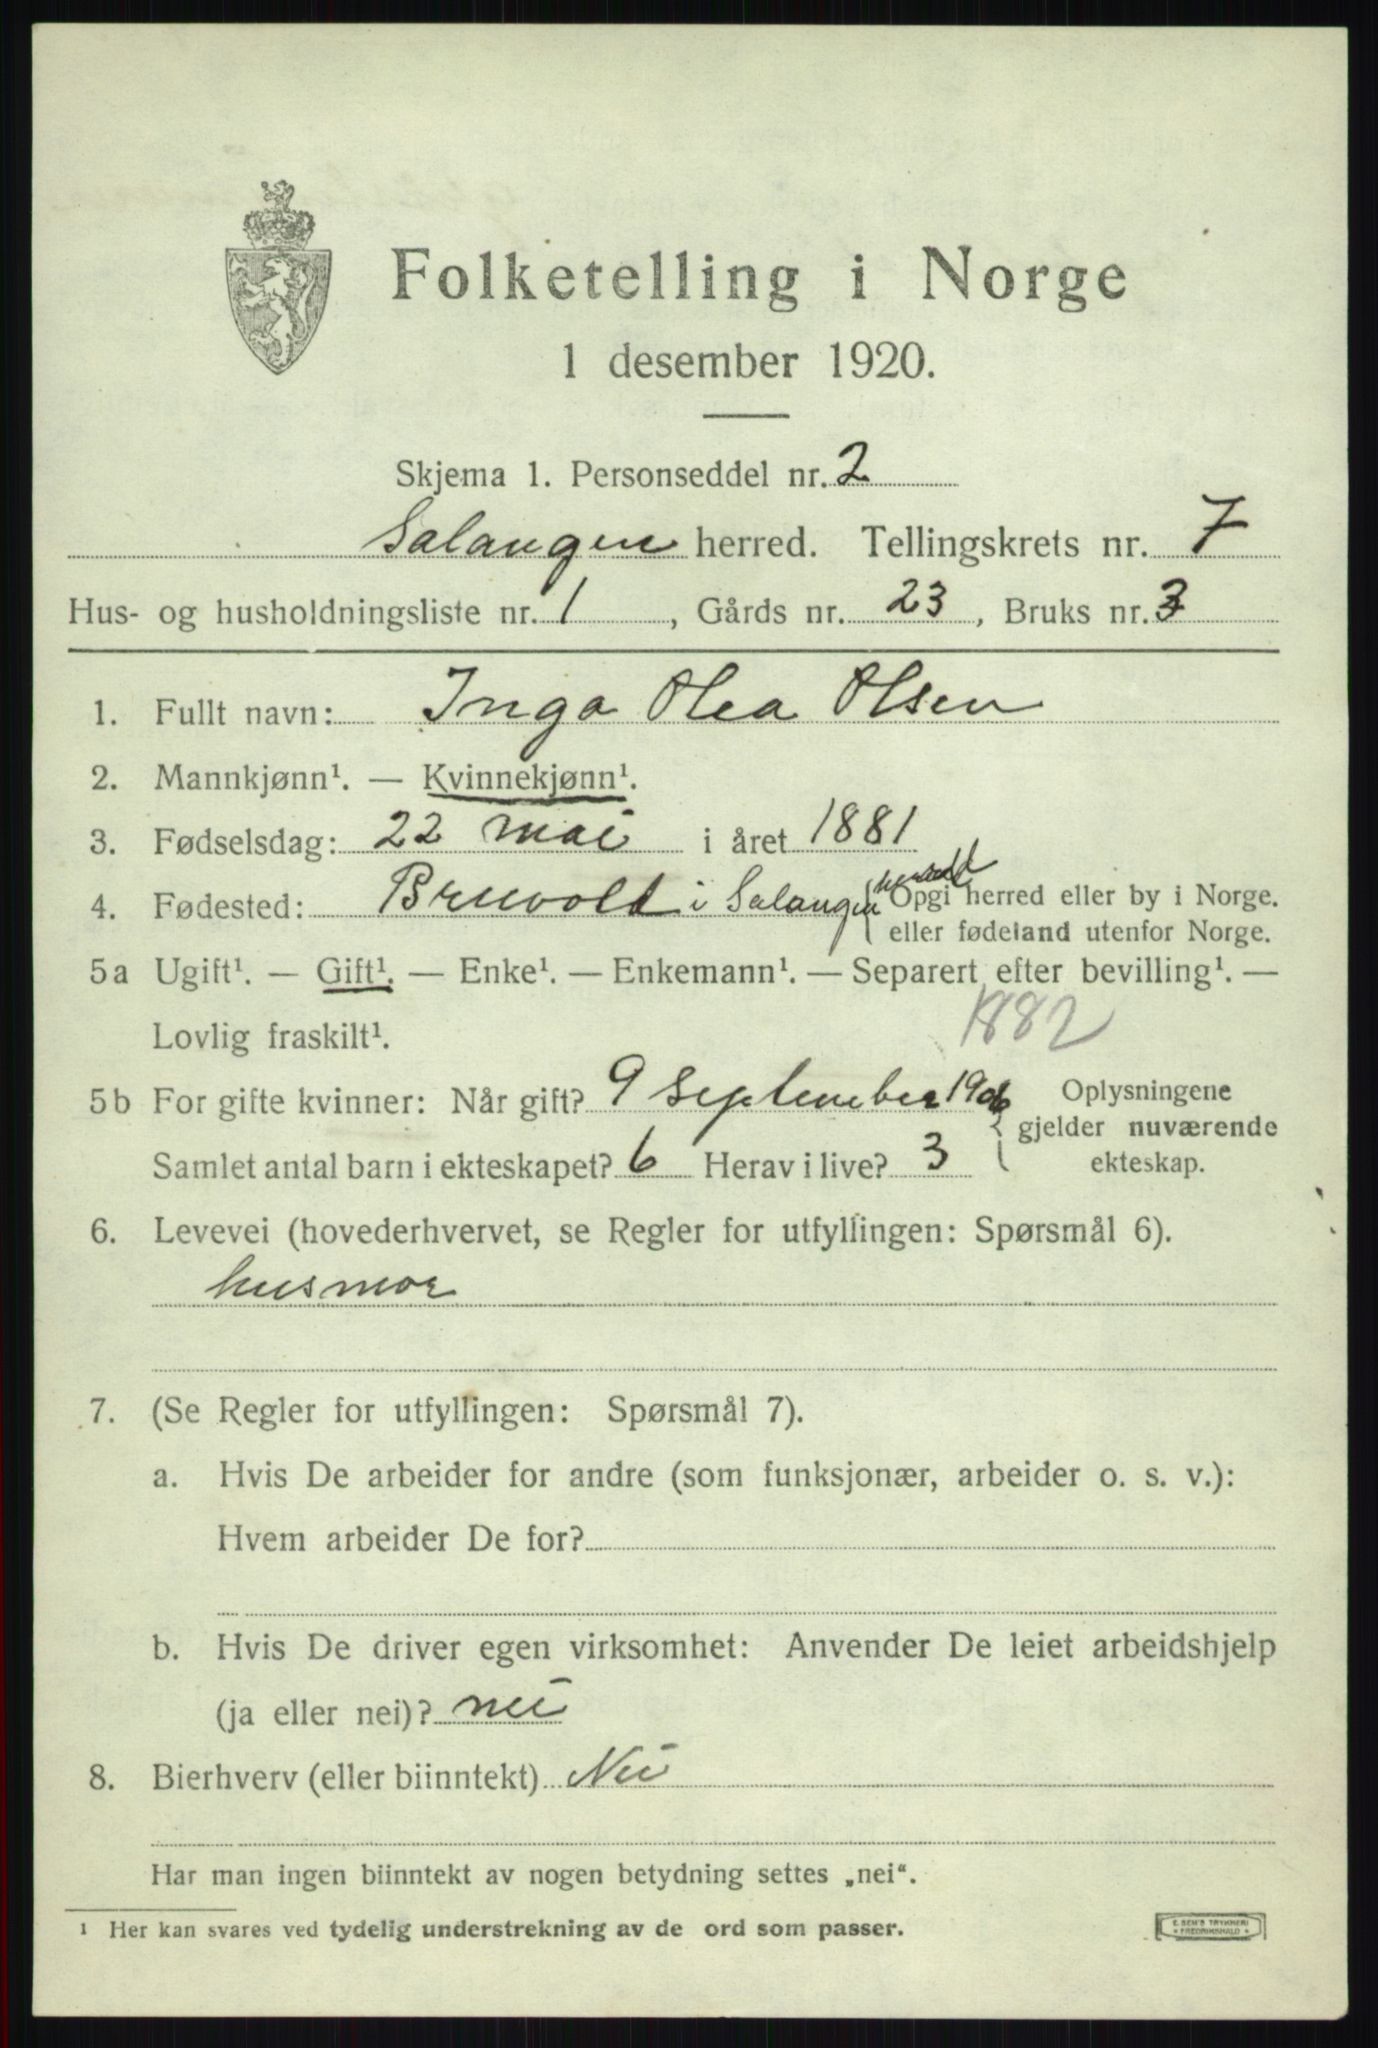 Folketelling i Norge
1 desember 1920.
Skjema 1. Personseddel nr. 2
Salangen herred. Tellingskrets nr. 7
Hus- og husholdningsliste nr. 1, Gårds nr. 23, Bruks nr. 3
1. Fullt navn: Inga Olea Olsen
2. Mannkjønn¹. — Kvinnekjønn¹.
3. Fødselsdag: 22 mai i året 1881
4. Fødested: Bruvold i Salangen herred Opgi herred eller by i Norge.
eller fødeland utenfor Norge.
5a Ugift¹. — Gift¹. — Enke¹. — Enkemann¹. — Separert efter bevilling¹. —
Lovlig fraskilt¹. 1882
5b For gifte kvinner: Når gift? 9 september 1906 Oplysningene
gjelder nuværende
Samlet antal barn i ekteskapet? 6 Herav i live? 3 ekteskap.
6. Levevei (hovederhvervet, se Regler for utfyllingen: Spørsmål 6).
husmor
7. (Se Regler for utfyllingen: Spørsmål 7).
a. Hvis De arbeider for andre (som funksjonær, arbeider o. s. v.):
Hvem arbeider De for?
b. Hvis De driver egen virksomhet: Anvender De leiet arbeidshjelp
(ja eller nei)? nei
8. Bierhverv (eller biinntekt) Nei
Har man ingen biinntekt av nogen betydning settes „nei“.
¹ Her kan svares ved tydelig understrekning av de ord som passer.
E. SEM'S TRYKKERI
FREDRIKSHALD